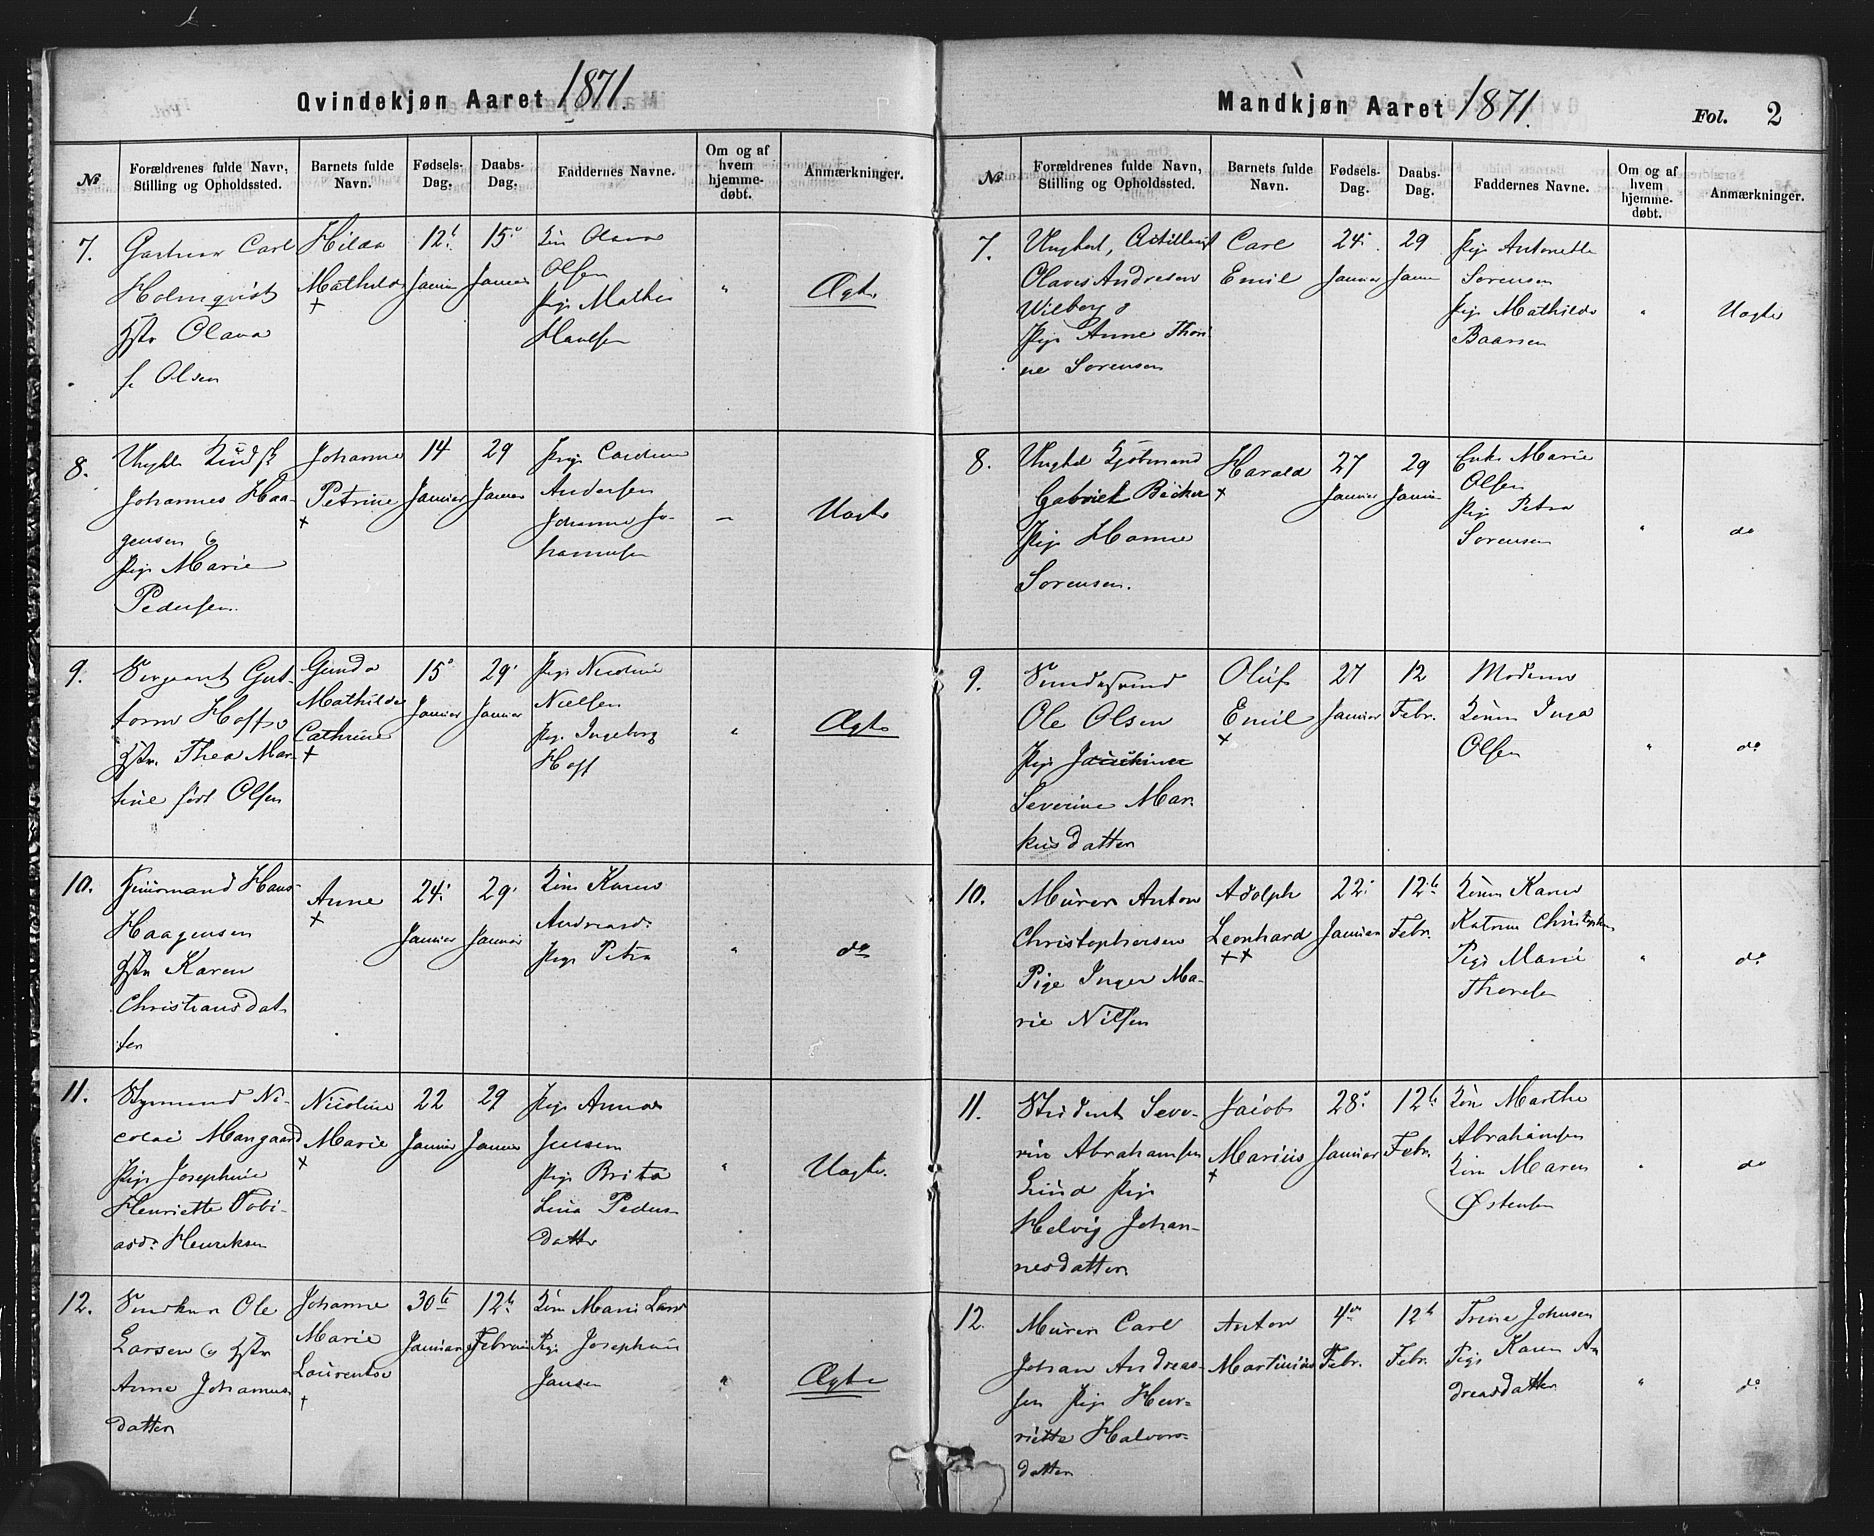 Qvindekjøn Aaret 1871.
№
Forældrenes fulde Navn, Stilling og Opholdssted.
Barnets fulde Navn.
Fødsels-Dag.
Daabs-Dag.
Faddernes Navne.
Om og af hvem hjemme-døbt.
Anmærkninger.
7.
Gartner Carl
Holmqvist
Hstr Olava
f. Olsen
Hilda
Mathilde
+
12t
Januar
15
Januar
Olava
Olsen
Pige Mathea
"
Ægte
8.
Ungk.
Johannes Haa-
gensen og
Pige Marie
Pedersen.
Johanne
Petrine
+
14
Januar
29
Januar
Pige
Andersen
Johanne Jo-
hannesen
—
Uægte
9.
Sergeant Gut-
torm Hoff og
Hstr. Thea Mar-
tine født Olsen
Gunda
Mathilde
Cathrine
+
15
Januar
29
Januar
Pige Nicoline
Nielsen
Pige Ingeborg
Hoff
"
Ægte
10.
Hans
Haagensen
Hstr Karen
Christiansdat-
ter
Anne
+
24
Januar
29
Januar
Kone Karen
Andreasd.
Pige Petra
"
do
11.
Styrmand Ni-
colai Mangaard
Pige Josephine
Henriette Tobi-
asd. Henriksen
Nicoline
Marie
+
22
Januar
29
Januar
Pige Anna
Jensen
Pige Brita
Lina Peders
datter
"
Uægte
12.
Ole
Larsen og Hstr
Anne Johannes
datter
Johanne
Marie
Laurentse
+
30te
Januar
12te
Februar
Kone Maria
Pige Josephine
Jansen
"
Ægte
Mandkjøn Aaret 1871.
Fol. 2
№
Forældrenes fulde Navn, Stilling og Opholdssted.
Barnets fulde Navn.
Fødsels-Dag.
Daabs-Dag.
Faddernes Navne.
Om og af hvem hjemme-døbt.
Anmærkninger.
7.
Ungkarl, Artillerist
Olaves Andresen
Wilberg &
Pige Anne Thori-
ne Sorensen
Carl
Emil
24
Januar
29
Janu
Pige Antonette
Sorensen
Pige Mathilde
Baarsen
"
Uægte
8.
Ungkl Kjøbmand
Gabriel Becker
Pige Hanne
Sorensen.
Harald
+
27
Januar
29
Januar
Enke Marie
Olsen
Pige Petra
Sorensen
"
do
9.
Ole Olsen
Pige
Severine Mar-
kusdatter
Oluf
Emil
+
27
Januar
12
Febr.
Moderen
Konen Inga
Olsen
"
do
10.
Murer Anton
Christophersen
Pige Inger Ma-
rie Nilsen
Adolph
Leonhard
++
22
Januar
12te
Febr.
Konen Karen
Katrine Christophs
Pige Marie
Thoresen
"
do
11.
Student Seve-
rin Abrahamsen
Lund Pige
Helvig Johan-
nesdatter
Jacob
Marius
+
28
Januar
12te
Febr.
Kone Marthe
Abrahamsen
Kone Maren
Østensen
"
do
12.
Murer Carl
Johan Andreas-
sen Pige Hen-
riette Halvors-
datter
Anton
Martinius
4de
Febr.
12te
Febr.
Trine Johnsen
Pige Karen An
dreasdatter
"
do